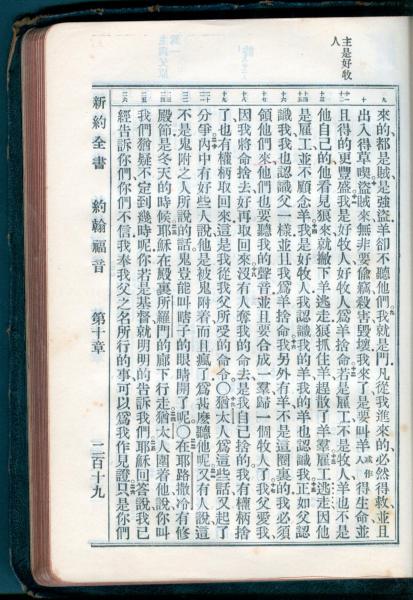 主是好牧
人
來的都是賊、是強盜、羊卻不聽他們。我就是門、凡從我進來的、必然得救、並且
出入得草喫。盜賊來、無非要偷竊、殺害、毀壞、我來了、是要叫羊或作人得生命、並
且得的更豐盛。我是好牧人、好牧人爲羊捨命。若是雇工、不是牧人、羊也不是
他自己的、他看見狼來、就撇下羊逃走、狼抓住羊、趕散了羊羣。雇工逃走、因他
是雇工、並不顧念羊。我是好牧人、我認識我的羊、我的羊也認識我。正如父認
識我、我也認識父一樣、並且我爲羊捨命。我另外有羊、不是這圈裏的、我必須
領他們來、他們也要聽我的聲音、並且要合成一羣、歸一個牧人了。我父愛我、
因我將命捨去、好再取回來。沒有人奪我的命去、是我自己捨的、我有權柄捨
了、也有權柄取回來、這是我從我父所受的命令。○猶太人爲這些話、又起了
分爭。內中有好些人說、他是被鬼附着、而且瘋了、爲甚麼聽他呢。又有人說、這
不是鬼附之人所說的話、鬼豈能叫瞎子的眼睛開了呢。○在耶路撒冷有修
殿節、是冬天的時候。耶穌在殿裏所羅門的廊下行走。猶太人圍着他、說、你叫
我們猶疑不定到幾時呢、你若是基督、就明明的告訴我們。耶穌回答說、我已
經告訴你們、你們不信、我奉我父之名所行的事、可以爲我作見證。只是你們
新約全書 約翰福音 第十章 二百十九